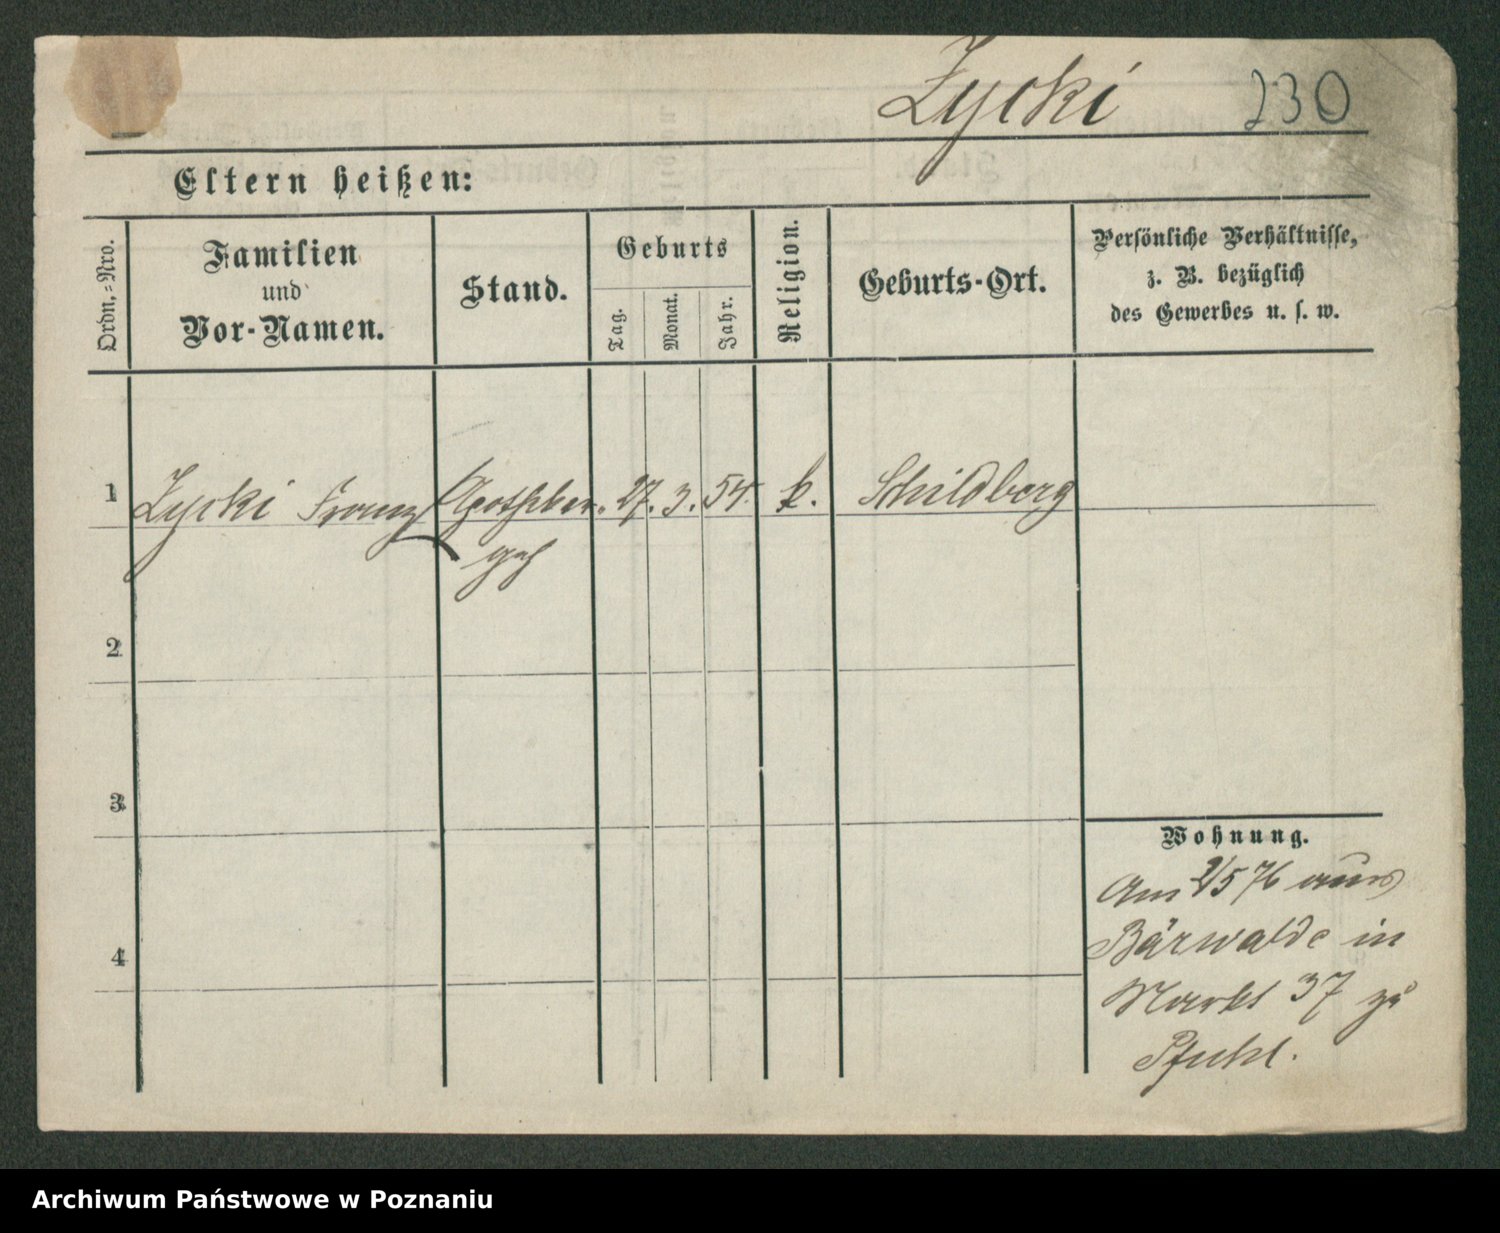 Zycki 230
Eltern heißen:
Ordn.-Nro.
Familien
und
Vor-Namen.
Stand.
Geburts
Tag.
Monat.
Jahr.
Religion.
Geburts-Ort.
Persönliche Verhältnisse,
z. B. bezüglich
des Gewerbes u. s. w.
1 Zycki Franz Apotheker. 27. 3. 54. k. Schildberg
2
3
4
Wohnung.
Am 2/5 76 aus
Bärwalde in
Markt 37 zu
Pfuhl.
Archiwum Państwowe w Poznaniu